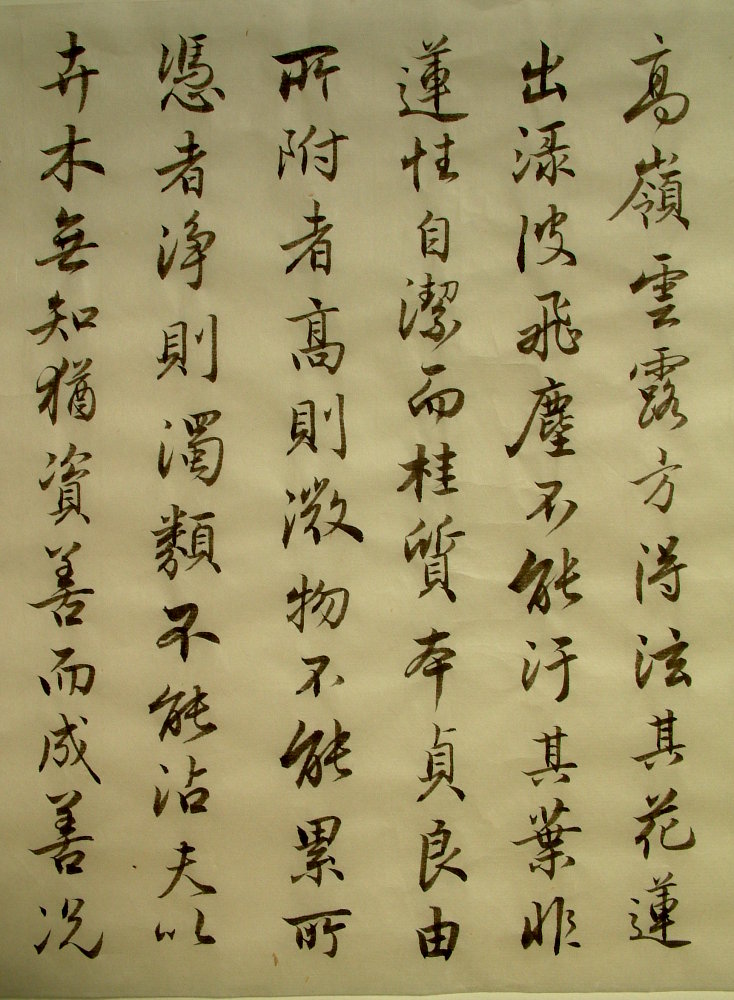 高嶺雲露方得泫其花蓮
出渌波飛塵不能汙其葉非
蓮性自潔而桂質本貞良由
所附者高則微物不能累所
憑者淨則濁類不能沾夫以
卉木無知猶資善而成善況